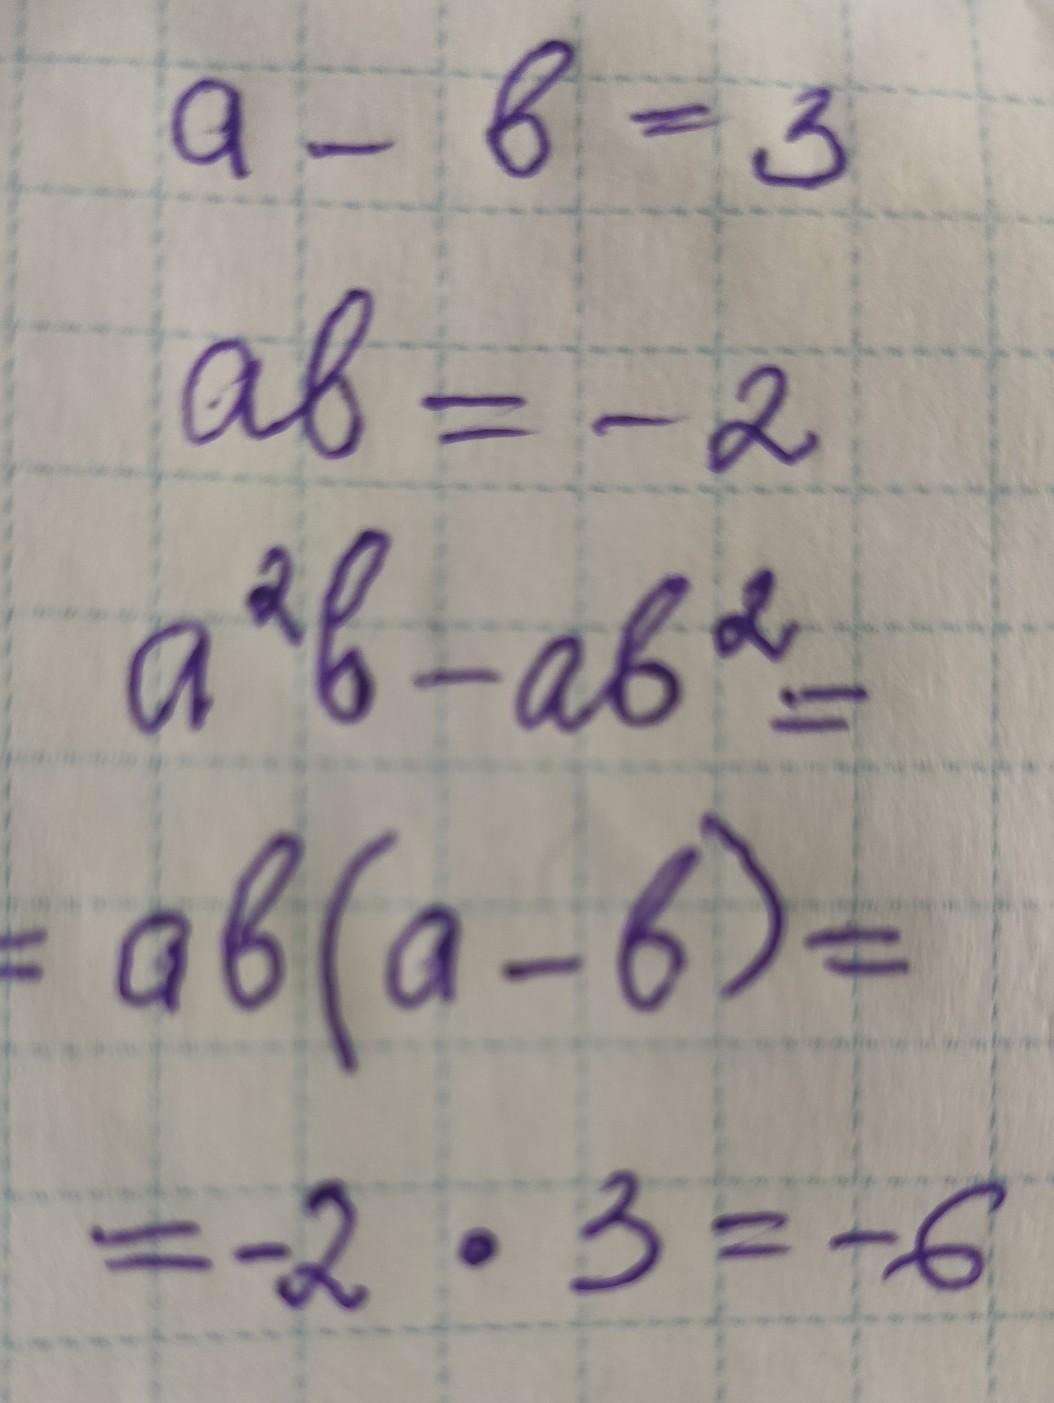 a - b = 3
ab = - 2
a²b - ab² =
= ab(a - b) =
= -2 · 3 = -6